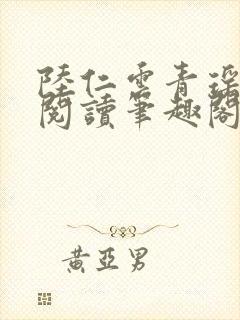 陸仁雲青瑤
閱讀筆趣閣
黃亞男